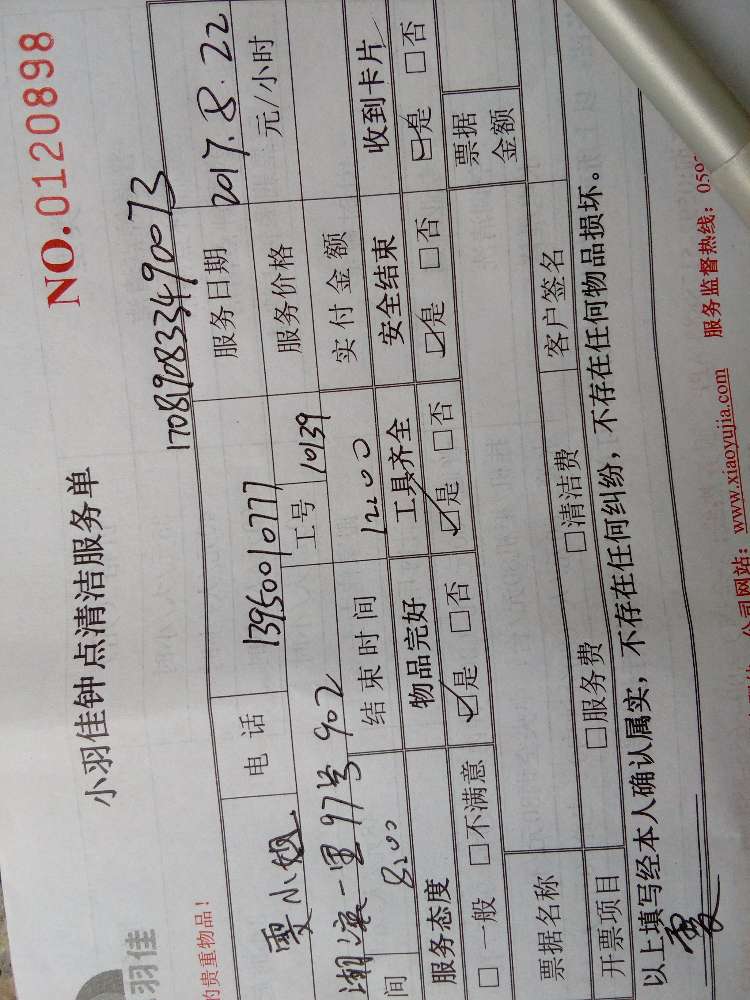 羽佳
的贵重物品！
小羽佳钟点清洁服务单
NO.0120898
1708190833490073
小姐 电 话 13950010777 服务日期 2017.8.22
一里97号902 工号 10139 服务价格 元/小时
间 8:00 结束时间 12:00 实付金额
服务态度 物品完好 工具齐全 安全结束 收到卡片
□一般 □不满意 ☑是 □否 ☑是 □否 ☑是 □否 ☑是 □否
票据名称 票据金额
开票项目 □服务费 □清洁费 客户签名
以上填写经本人确认属实，不存在任何纠纷，不存在任何物品损坏。
公司网站：www.xiaoyujia.com 服务监督热线：059